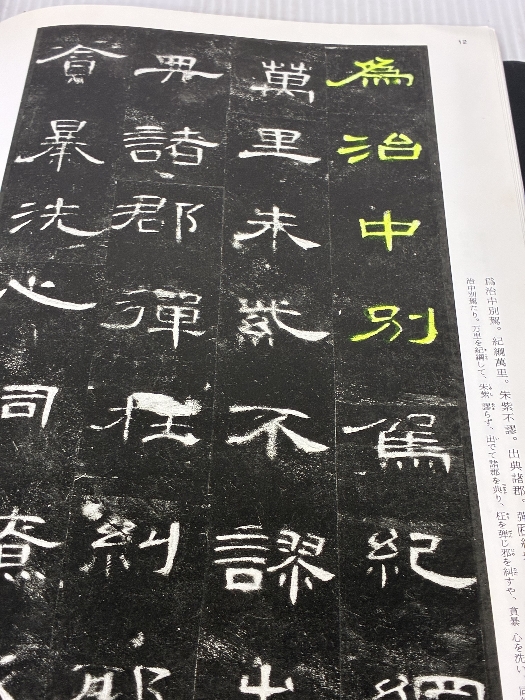 12
爲治中別駕。紀綱萬里。朱紫不謬。出典諸郡。彈枉糾
治中別駕たり。万里を紀綱して、朱紫謬らず、出でて諸郡を典り、枉を弾じ邪を糾すや、貪暴 心を洗い、
為治中別駕紀綱
萬里朱紫不謬出
典諸郡彈枉糾邪
貪暴洗心同僚